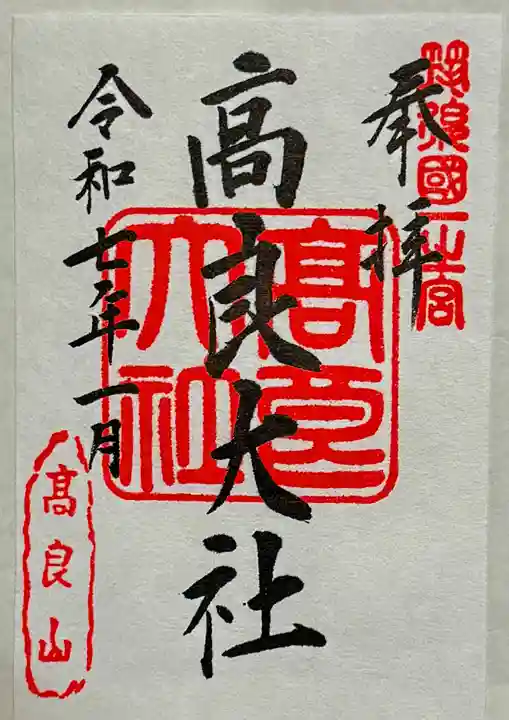 奉拝
筑後國一之宮
髙良大社
髙良大社
令和七年一月
髙良山